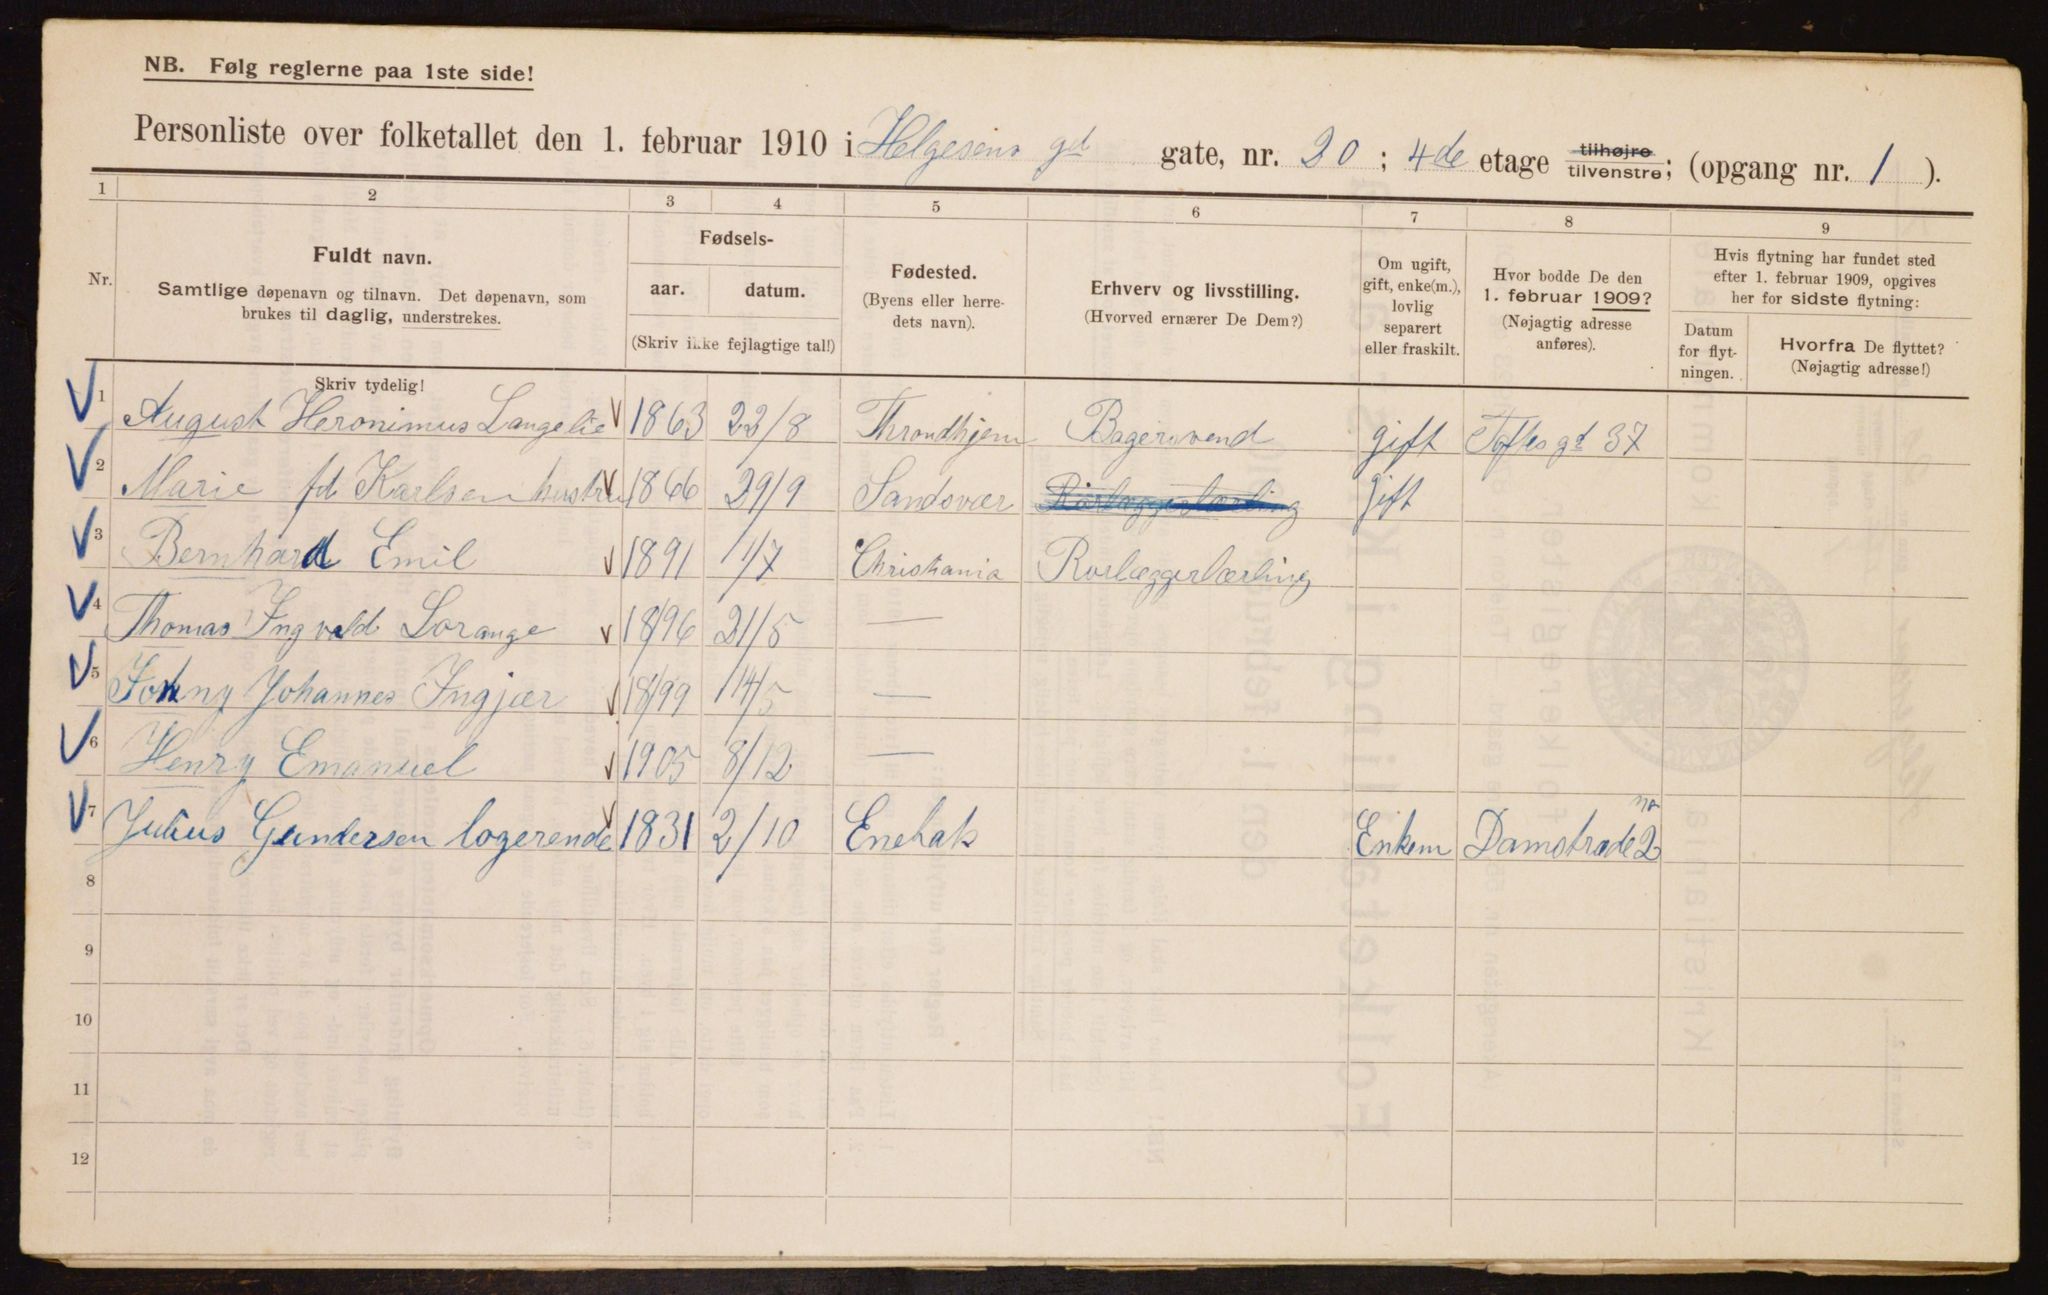 NB. Følg reglerne paa 1ste side!
Personliste over folketallet den 1. februar 1910 i Helgesens gd gate, nr. 20; 4de etage tilhøjre tilvenstre; (opgang nr. 1).
1 2 3 4 5 6 7 8 9
Nr.
Fuldt navn.
Samtlige døpenavn og tilnavn. Det døpenavn, som
brukes til daglig, understrekes.
Skriv tydelig!
Fødsels-
aar. datum.
(Skriv ikke fejlagtige tal!)
Fødested.
(Byens eller herre-
dets navn).
Erhverv og livsstilling.
(Hvorved ernærer De Dem?)
Om ugift,
gift, enke(m.),
lovlig
separert
eller fraskilt.
Hvor bodde De den
1. februar 1909?
(Nøjagtig adresse
anføres).
Hvis flytning har fundet sted
efter 1. februar 1909, opgives
her for sidste flytning:
Datum
for flyt-
ningen.
Hvorfra De flyttet?
(Nøjagtig adresse!)
1 August Heronimus Langelie 1863 22/8 Throndhjem Bagersvend gift Toftes gd 37
2 Marie fd Karlsen hustru 1866 29/9 Sandsvær Rørlæggerlærling gift
3 Bernhard Emil 1891 1/7 Christiania Rørlæggerlærling
4 Thomas Ingvald Lorange 1896 21/5 —
5 Johny Johannes Ingjær 1899 14/5 —
6 Henry Emanuel 1905 8/12 —
7 Julius Gundersen logerende 1831 2/10 Enebak Enkem Damstrade no 2
8
9
10
11
12